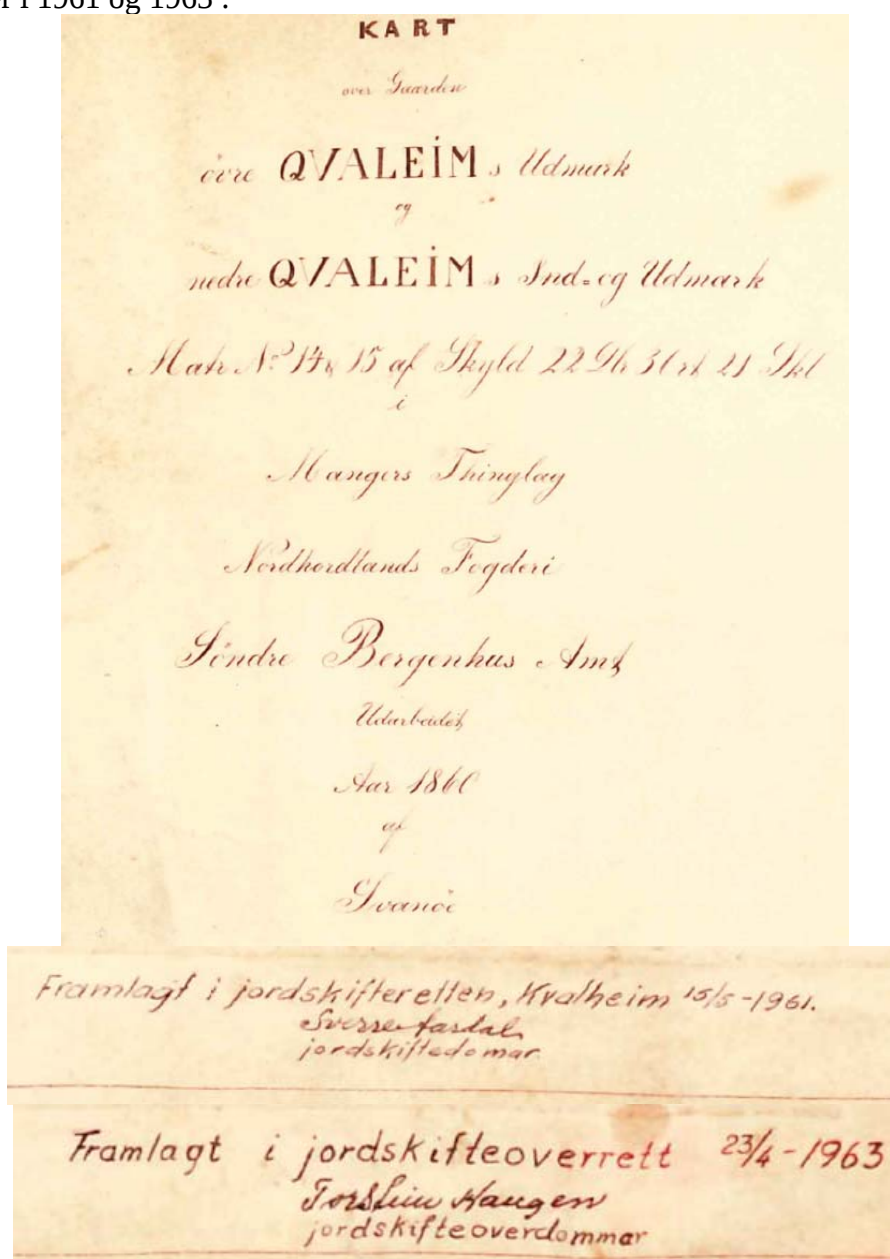 i 1961 og 1963 .
KART
over Gaarden
övre QVALEİM s Udmark
og
nedre QVALEİM s Ind- og Udmark
Matr No 14 & 15 af Skyld 22 Dlr 3 ort 21 Skl
i
Mangers Thinglag
Nordhordlands Fogderi
Söndre Bergenhus Amt
Udarbeidet
Aar 1860
af
Svanöe
Framlagt i jordskifteretten, Kvalheim 15/5-1961.
Sverre
jordskiftedomar
Framlagt i jordskifteoverrett 23/4-1963
Torstein Haugen
jordskifteoverdommar